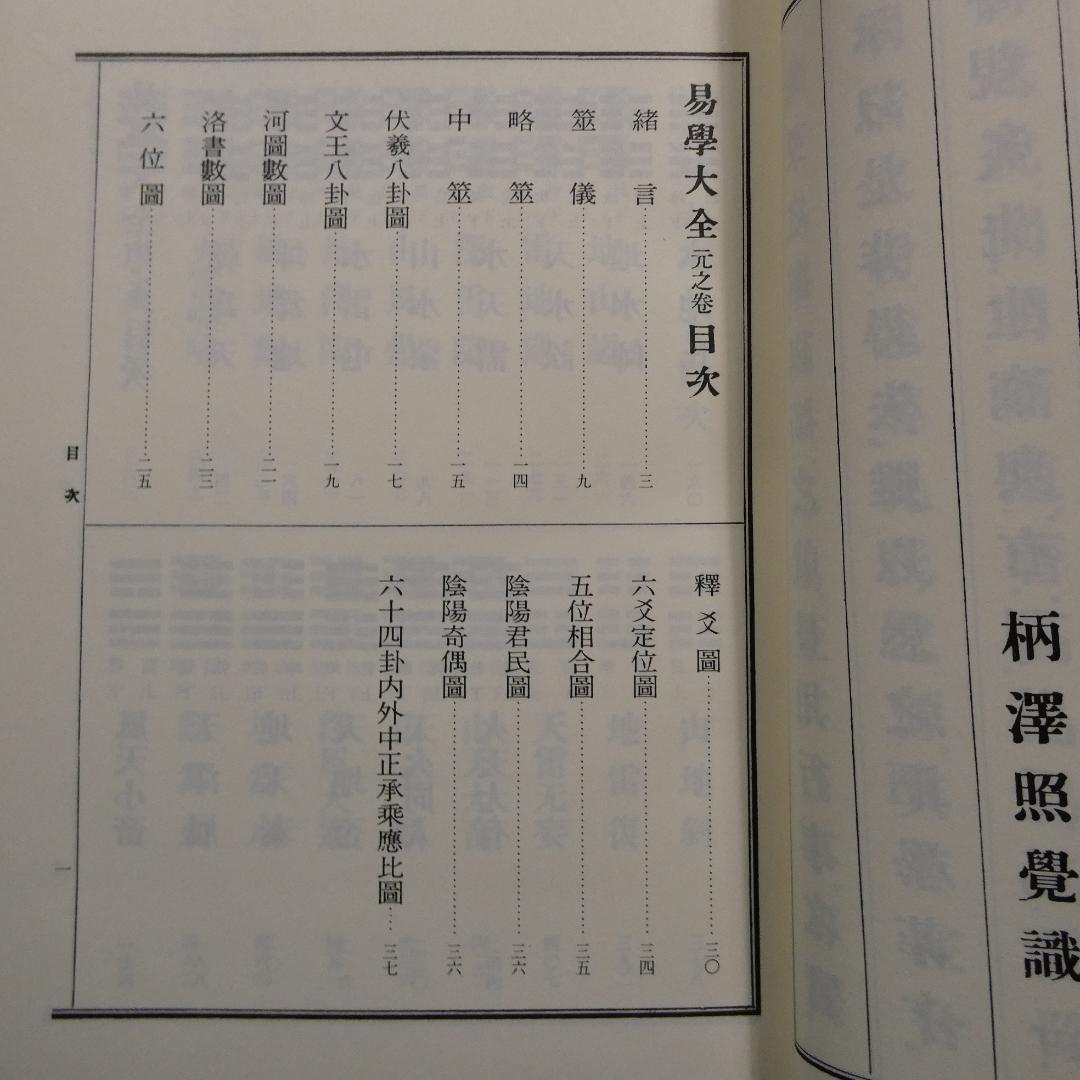 柄澤照覺識
易學大全元之卷目次
緒言……三
筮儀……九
略筮……一四
中筮……一五
伏羲八卦圖……一七
文王八卦圖……一九
河圖數圖……二一
洛書數圖……二三
六位圖……二五
釋爻圖……三〇
六爻定位圖……三四
五位相合圖……三五
陰陽君民圖……三六
陰陽奇偶圖……三六
六十四卦内外中正承乘應比圖…三七
目次
一